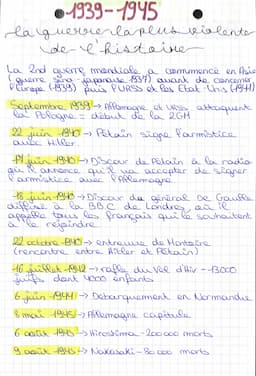 1939-1945
la guerre la plus violente
de l'histoire
La 2nd guerre mondiale a commencé en Asie
(guerre sino-japonaise 1937) avant de concerner
l'Europe (1939) puis l'URSS et les Etat-Unis (1941)
Septembre 1939 → Allemagne et URSS attaquent
la Pologne = début de la 2GM
22 juin 1940 → Pétain signe l'armistice
avec Hitler
17 juin 1940 → Discour de Pétain à la radio
où il annonce qu'il va accepter de signer
l'armistice avec l'Allemagne
18 juin 1940 → Discour du général De Gaulle
diffusé à la BBC de Londres, où il
appelle tous les français qui le souhaitent
à le rejoindre
22 octobre 1940 → entrevue de Montoire
(rencontre entre Hitler et Pétain)
16 juillet 1942 → rafle du Vel d'Hiv - 13000
juifs dont 4000 enfants
6 juin 1944 → Debarquement en Normandie
8 mai 1945 → Allemagne capitule
6 août 1945 → Hiroshima - 200 000 morts
9 août 1945 → Nakasaki - 80 000 morts